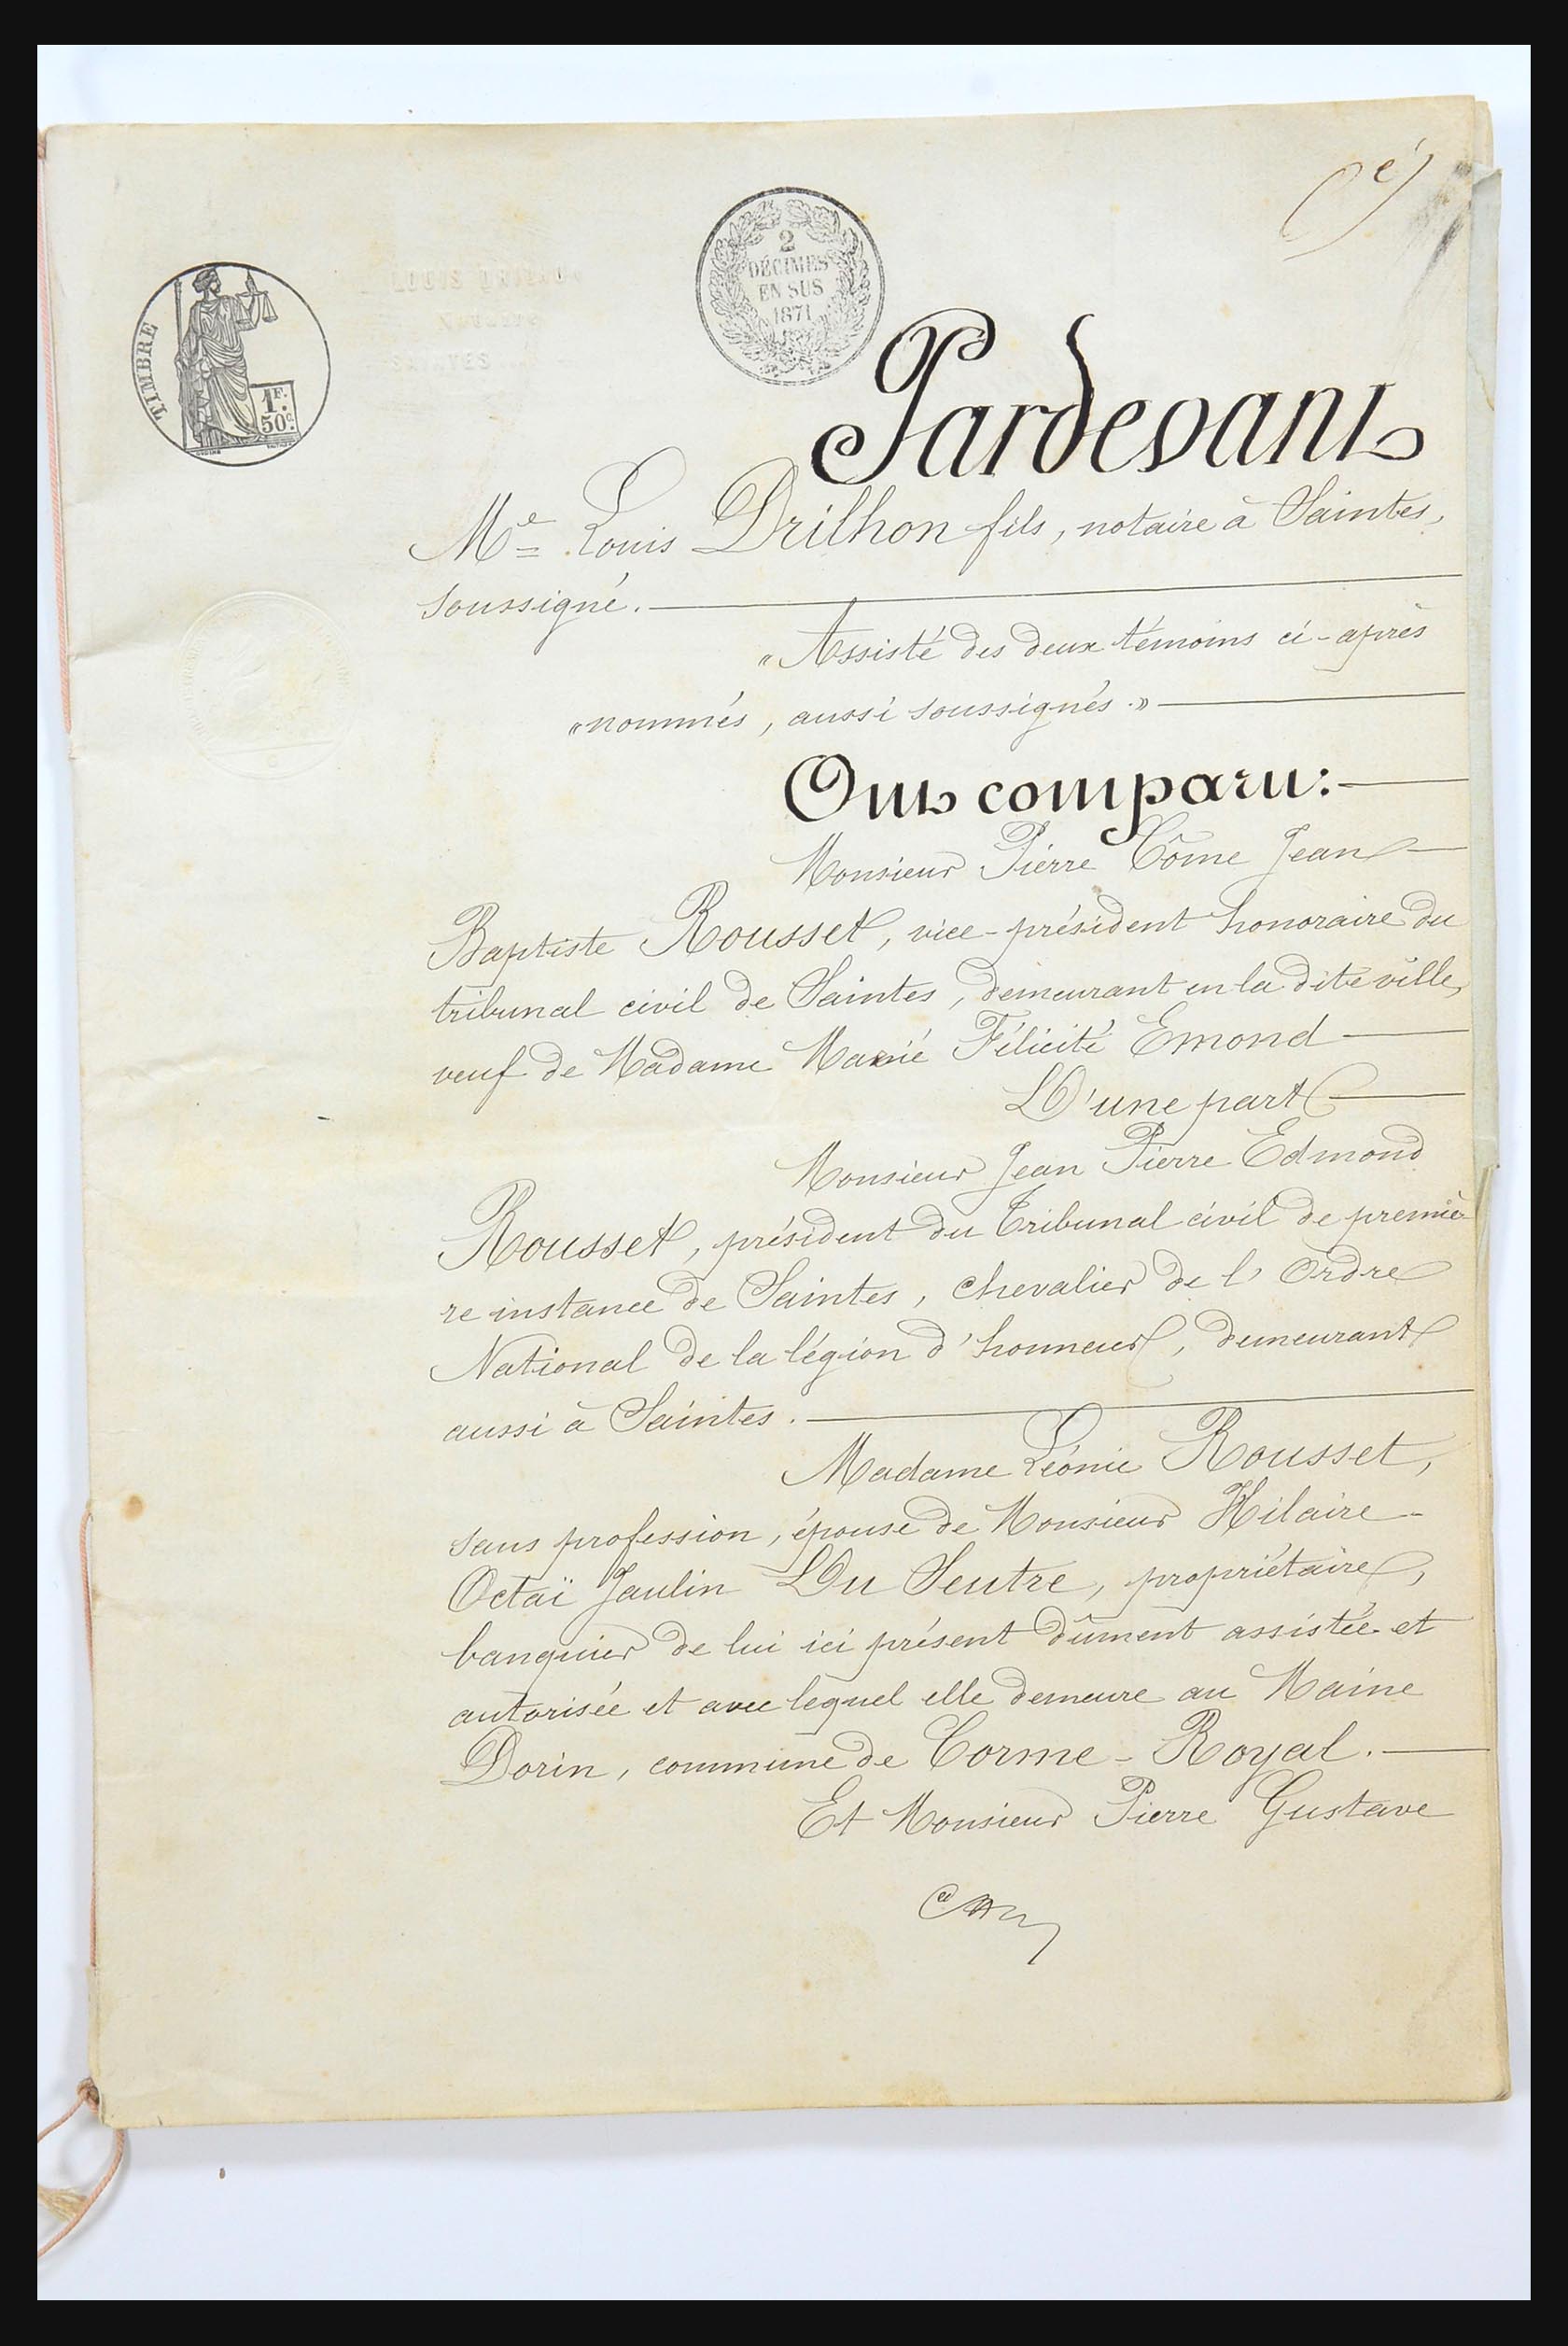 é
2
DÉCIMES
EN SUS
1871
TIMBRE
1F.
50c.
LOUIS DRILHON
Notaire
SAINTES
Pardevant
Me Louis Drilhon fils, notaire à Saintes,
soussigné.
"Assisté des deux témoins ci-après
"nommés, aussi soussignés."
Ont comparu:
Monsieur Pierre Côme Jean
Baptiste Rousset, vice-président honoraire du
tribunal civil de Saintes, demeurant en la dite ville,
veuf de Madame Marie Félicité Emond
D'une part
Monsieur Jean Pierre Edmond
Rousset, président du Tribunal civil de premiè-
re instance de Saintes, chevalier de l'Ordre
National de la légion d'honneur, demeurant
aussi à Saintes.
Madame Léonie Rousset,
sans profession, épouse de Monsieur Hilaire
Octaï Jaulin Du Seutre, propriétaire,
banquier de lui ici présent dûment assistée et
autorisée et avec lequel elle demeure au Maine
Dorin, commune de Corme-Royal.
Et Monsieur Pierre Gustave